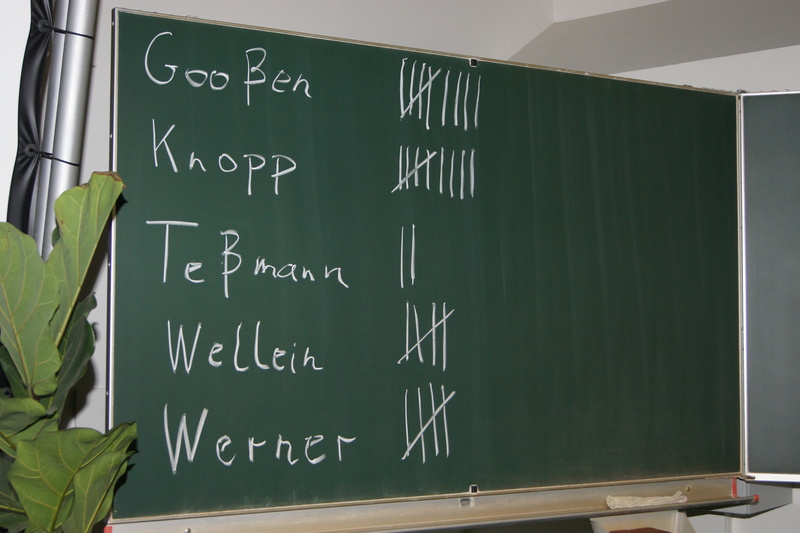 Gooßen
Knopp
Teßmann ||
Wellein
Werner